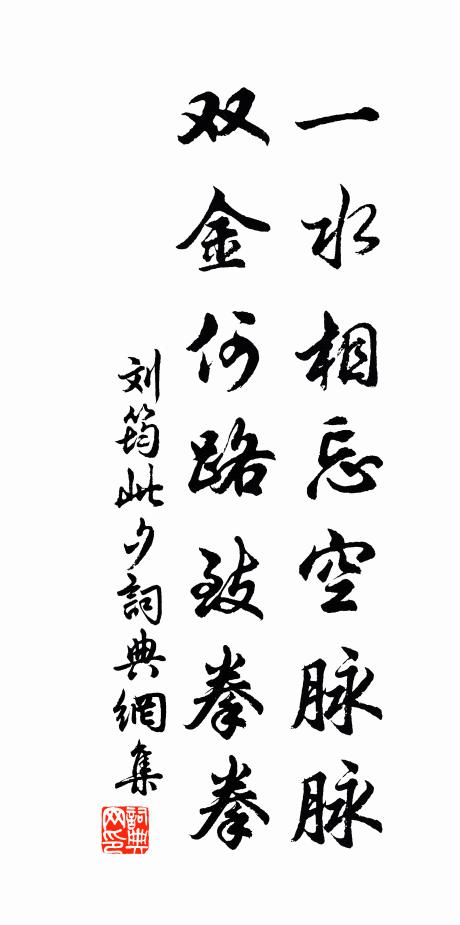 一水相忘空脉脉
双金何路致拳拳
刘筠此夕詞典網集
詞典
网印